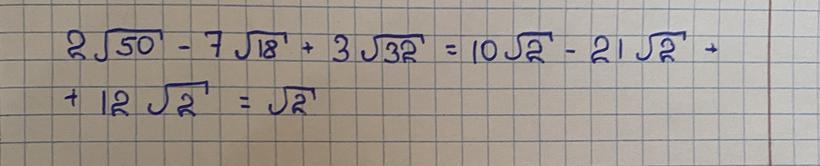 2√50 - 7√18 + 3√32 = 10√2 - 21√2 +
+ 12√2 = √2